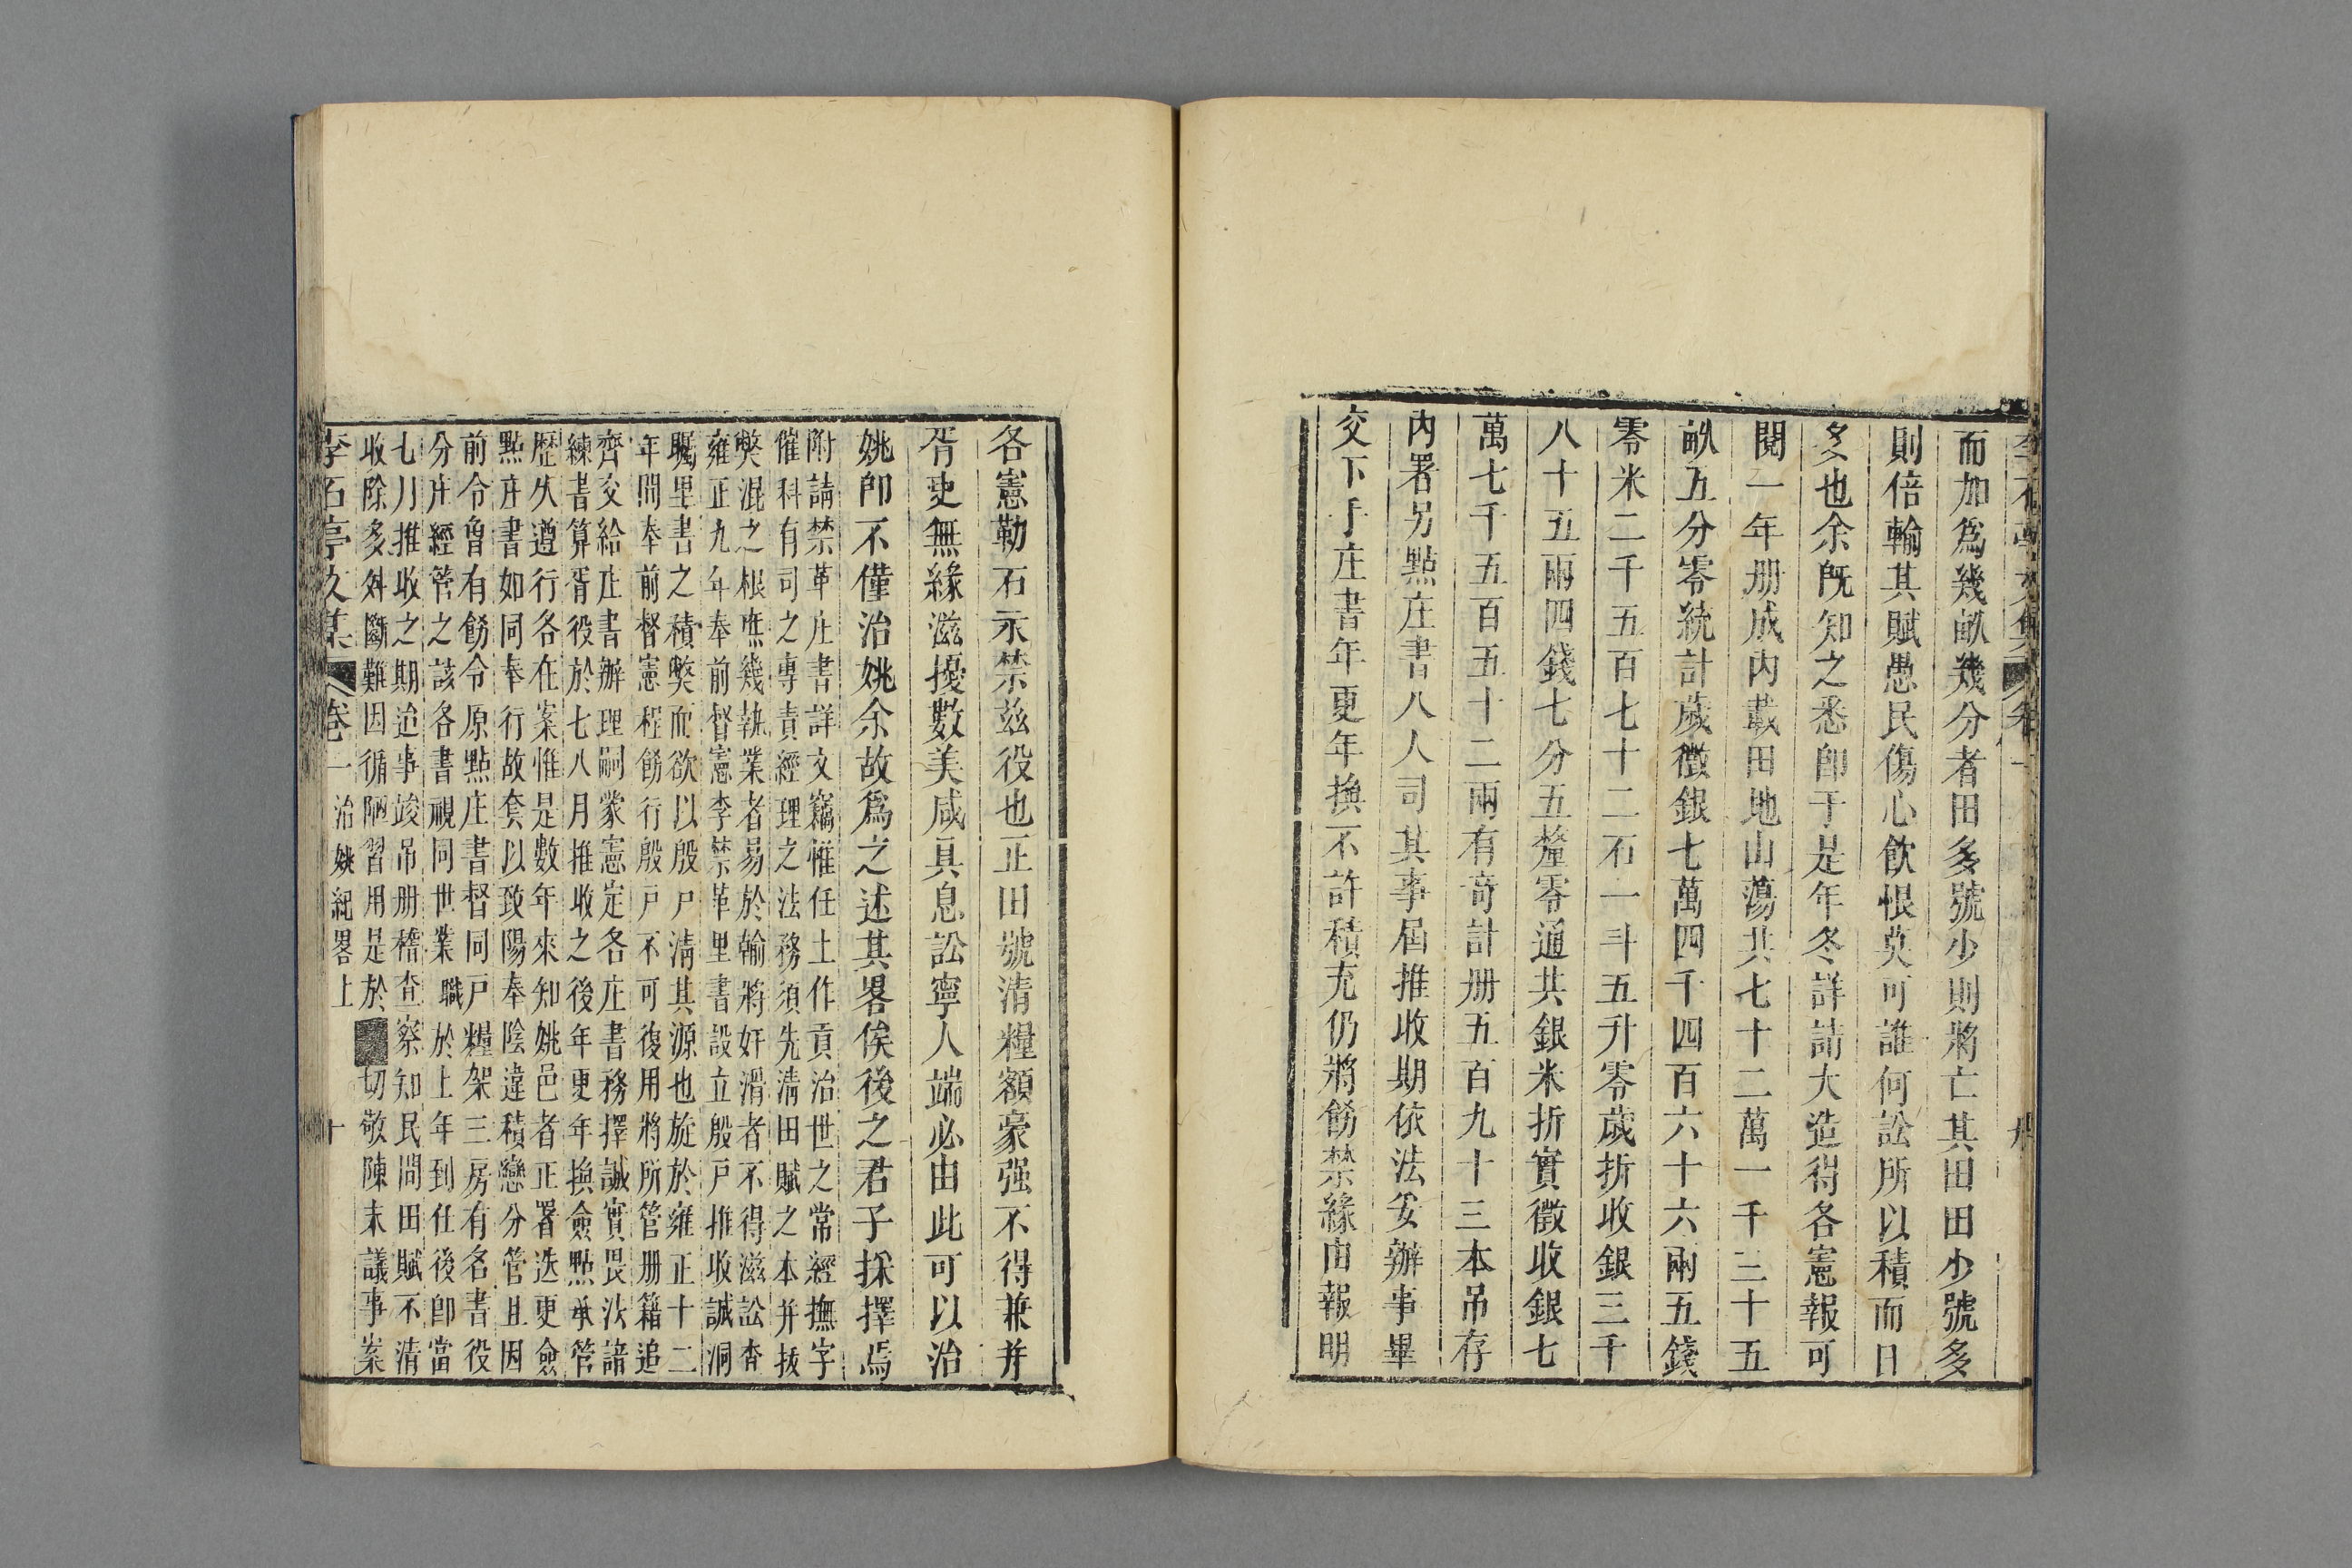 李石亭文集 卷一 九
而加爲幾畝幾分者田多號少則將亡其田田少號多
則倍輸其賦愚民傷心飲恨莫可誰何訟所以積而日
多也余旣知之悉卽于是年冬詳請大造得各憲報可
閱一年册成內載田地山蕩共七十二萬一千三十五
畝五分零統計歲徵銀七萬四千四百六十六兩五錢
零米二千五百七十二石一斗五升零歲折收銀三千
八十五兩四錢七分五釐零通共銀米折實徵收銀七
萬七千五百五十二兩有奇計册五百九十三本吊存
內署另點庄書八人司其事屆推收期依法妥辦事畢
交下手庄書年更年換不許積充仍將飭禁緣由報明
各憲勒石示禁兹役也正田號清糧額豪强不得兼并
胥吏無緣滋擾數美咸具息訟寧人端必由此可以治
姚卽不僅治姚余故爲之述其畧俟後之君子採擇焉
附請禁革庄書詳文竊惟任土作貢治世之常經撫字
催科有司之專責經理之法務須先清田賦之本并拔
獘混之根庶幾執業者易於輸將奸滑者不得滋訟查
雍正九年奉前督憲李禁革里書設立殷戸推收誠洞
矚里書之積獘而欲以殷戸清其源也旋於雍正十二
年間奉前督憲程飭行殷戸不可復用將所管册籍追
齊交給庄書辦理嗣蒙憲定各庄書務擇誠實畏法諳
練書算胥役於七八月推收之後年更年換僉點承管
歷久遵行各在案惟是數年來知姚邑者正署迭更僉
點庄書如同奉行故套以致陽奉陰違積戀分管且因
前令魯有飭令原點庄書督同戸糧架三房有名書役
分庄經管之該各書視同世業 職於上年到任後卽當
七月推收之期迨事竣吊册稽查察知民間田賦不清
收除多舛斷難因循陋習用是於 切敬陳末議事案
李石亭文集 卷一 治姚紀畧上 十